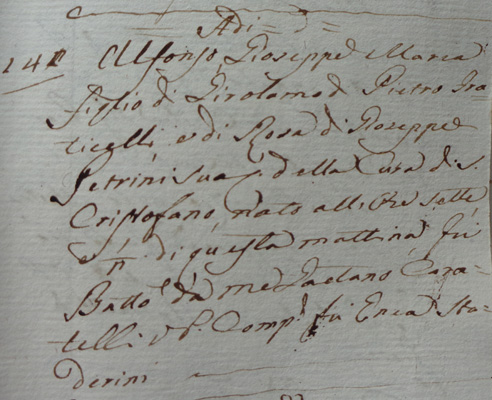 Adi = 5 =
141 Alfonso, Gioseppe Maria
figlio di Girolamo di Pietro Fra=
ticelli, e di Rosa di Gioseppe
Petrini sua C. della Cura di S.
Cristofano, nato alli Ore sette
e ½ di questa mattina fù
Batt.º da me Gaetano Cora=
telli V. P. Comp.e fù Enea Sto=
derini